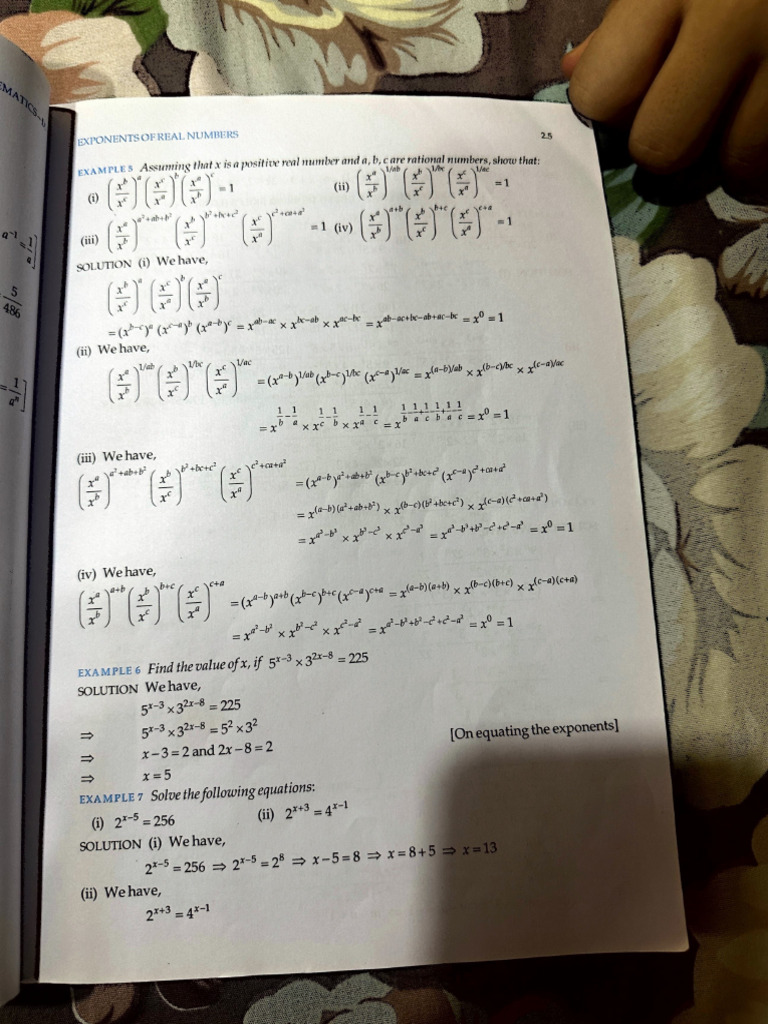 EMATICS–I
EXPONENTS OF REAL NUMBERS 2.5
EXAMPLE 5 Assuming that x is a positive real number and a, b, c are rational numbers, show that:
(i) (x^b/x^c)^a (x^c/x^a)^b (x^a/x^b)^c = 1 (ii) (x^a/x^b)^1/ab (x^b/x^c)^1/bc (x^c/x^a)^1/ac = 1
(iii) (x^a/x^b)^a²+ab+b² (x^b/x^c)^b²+bc+c² (x^c/x^a)^c²+ca+a² = 1 (iv) (x^a/x^b)^a+b (x^b/x^c)^b+c (x^c/x^a)^c+a = 1
a^–1 = 1/a]
5/486
= 1/a^n]
SOLUTION (i) We have,
(x^b/x^c)^a (x^c/x^a)^b (x^a/x^b)^c
= (x^b–c)^a (x^c–a)^b (x^a–b)^c = x^ab–ac × x^bc–ab × x^ac–bc = x^ab–ac+bc–ab+ac–bc = x^0 = 1
(ii) We have,
(x^a/x^b)^1/ab (x^b/x^c)^1/bc (x^c/x^a)^1/ac = (x^a–b)^1/ab (x^b–c)^1/bc (x^c–a)^1/ac = x^(a–b)/ab × x^(b–c)/bc × x^(c–a)/ac
= x^1/b–1/a × x^1/c–1/b × x^1/a–1/c = x^1/b–1/a+1/c–1/b+1/a–1/c = x^0 = 1
(iii) We have,
(x^a/x^b)^a²+ab+b² (x^b/x^c)^b²+bc+c² (x^c/x^a)^c²+ca+a² = (x^a–b)^a²+ab+b² (x^b–c)^b²+bc+c² (x^c–a)^c²+ca+a²
= x^(a–b)(a²+ab+b²) × x^(b–c)(b²+bc+c²) × x^(c–a)(c²+ca+a²)
= x^a³–b³ × x^b³–c³ × x^c³–a³ = x^a³–b³+b³–c³+c³–a³ = x^0 = 1
(iv) We have,
(x^a/x^b)^a+b (x^b/x^c)^b+c (x^c/x^a)^c+a = (x^a–b)^a+b (x^b–c)^b+c (x^c–a)^c+a = x^(a–b)(a+b) × x^(b–c)(b+c) × x^(c–a)(c+a)
= x^a²–b² × x^b²–c² × x^c²–a² = x^a²–b²+b²–c²+c²–a² = x^0 = 1
EXAMPLE 6 Find the value of x, if 5^x–3 × 3^2x–8 = 225
SOLUTION We have,
5^x–3 × 3^2x–8 = 225
⇒ 5^x–3 × 3^2x–8 = 5² × 3²
⇒ x – 3 = 2 and 2x – 8 = 2 [On equating the exponents]
⇒ x = 5
EXAMPLE 7 Solve the following equations:
(i) 2^x–5 = 256 (ii) 2^x+3 = 4^x–1
SOLUTION (i) We have,
2^x–5 = 256 ⇒ 2^x–5 = 2^8 ⇒ x – 5 = 8 ⇒ x = 8 + 5 ⇒ x = 13
(ii) We have,
2^x+3 = 4^x–1